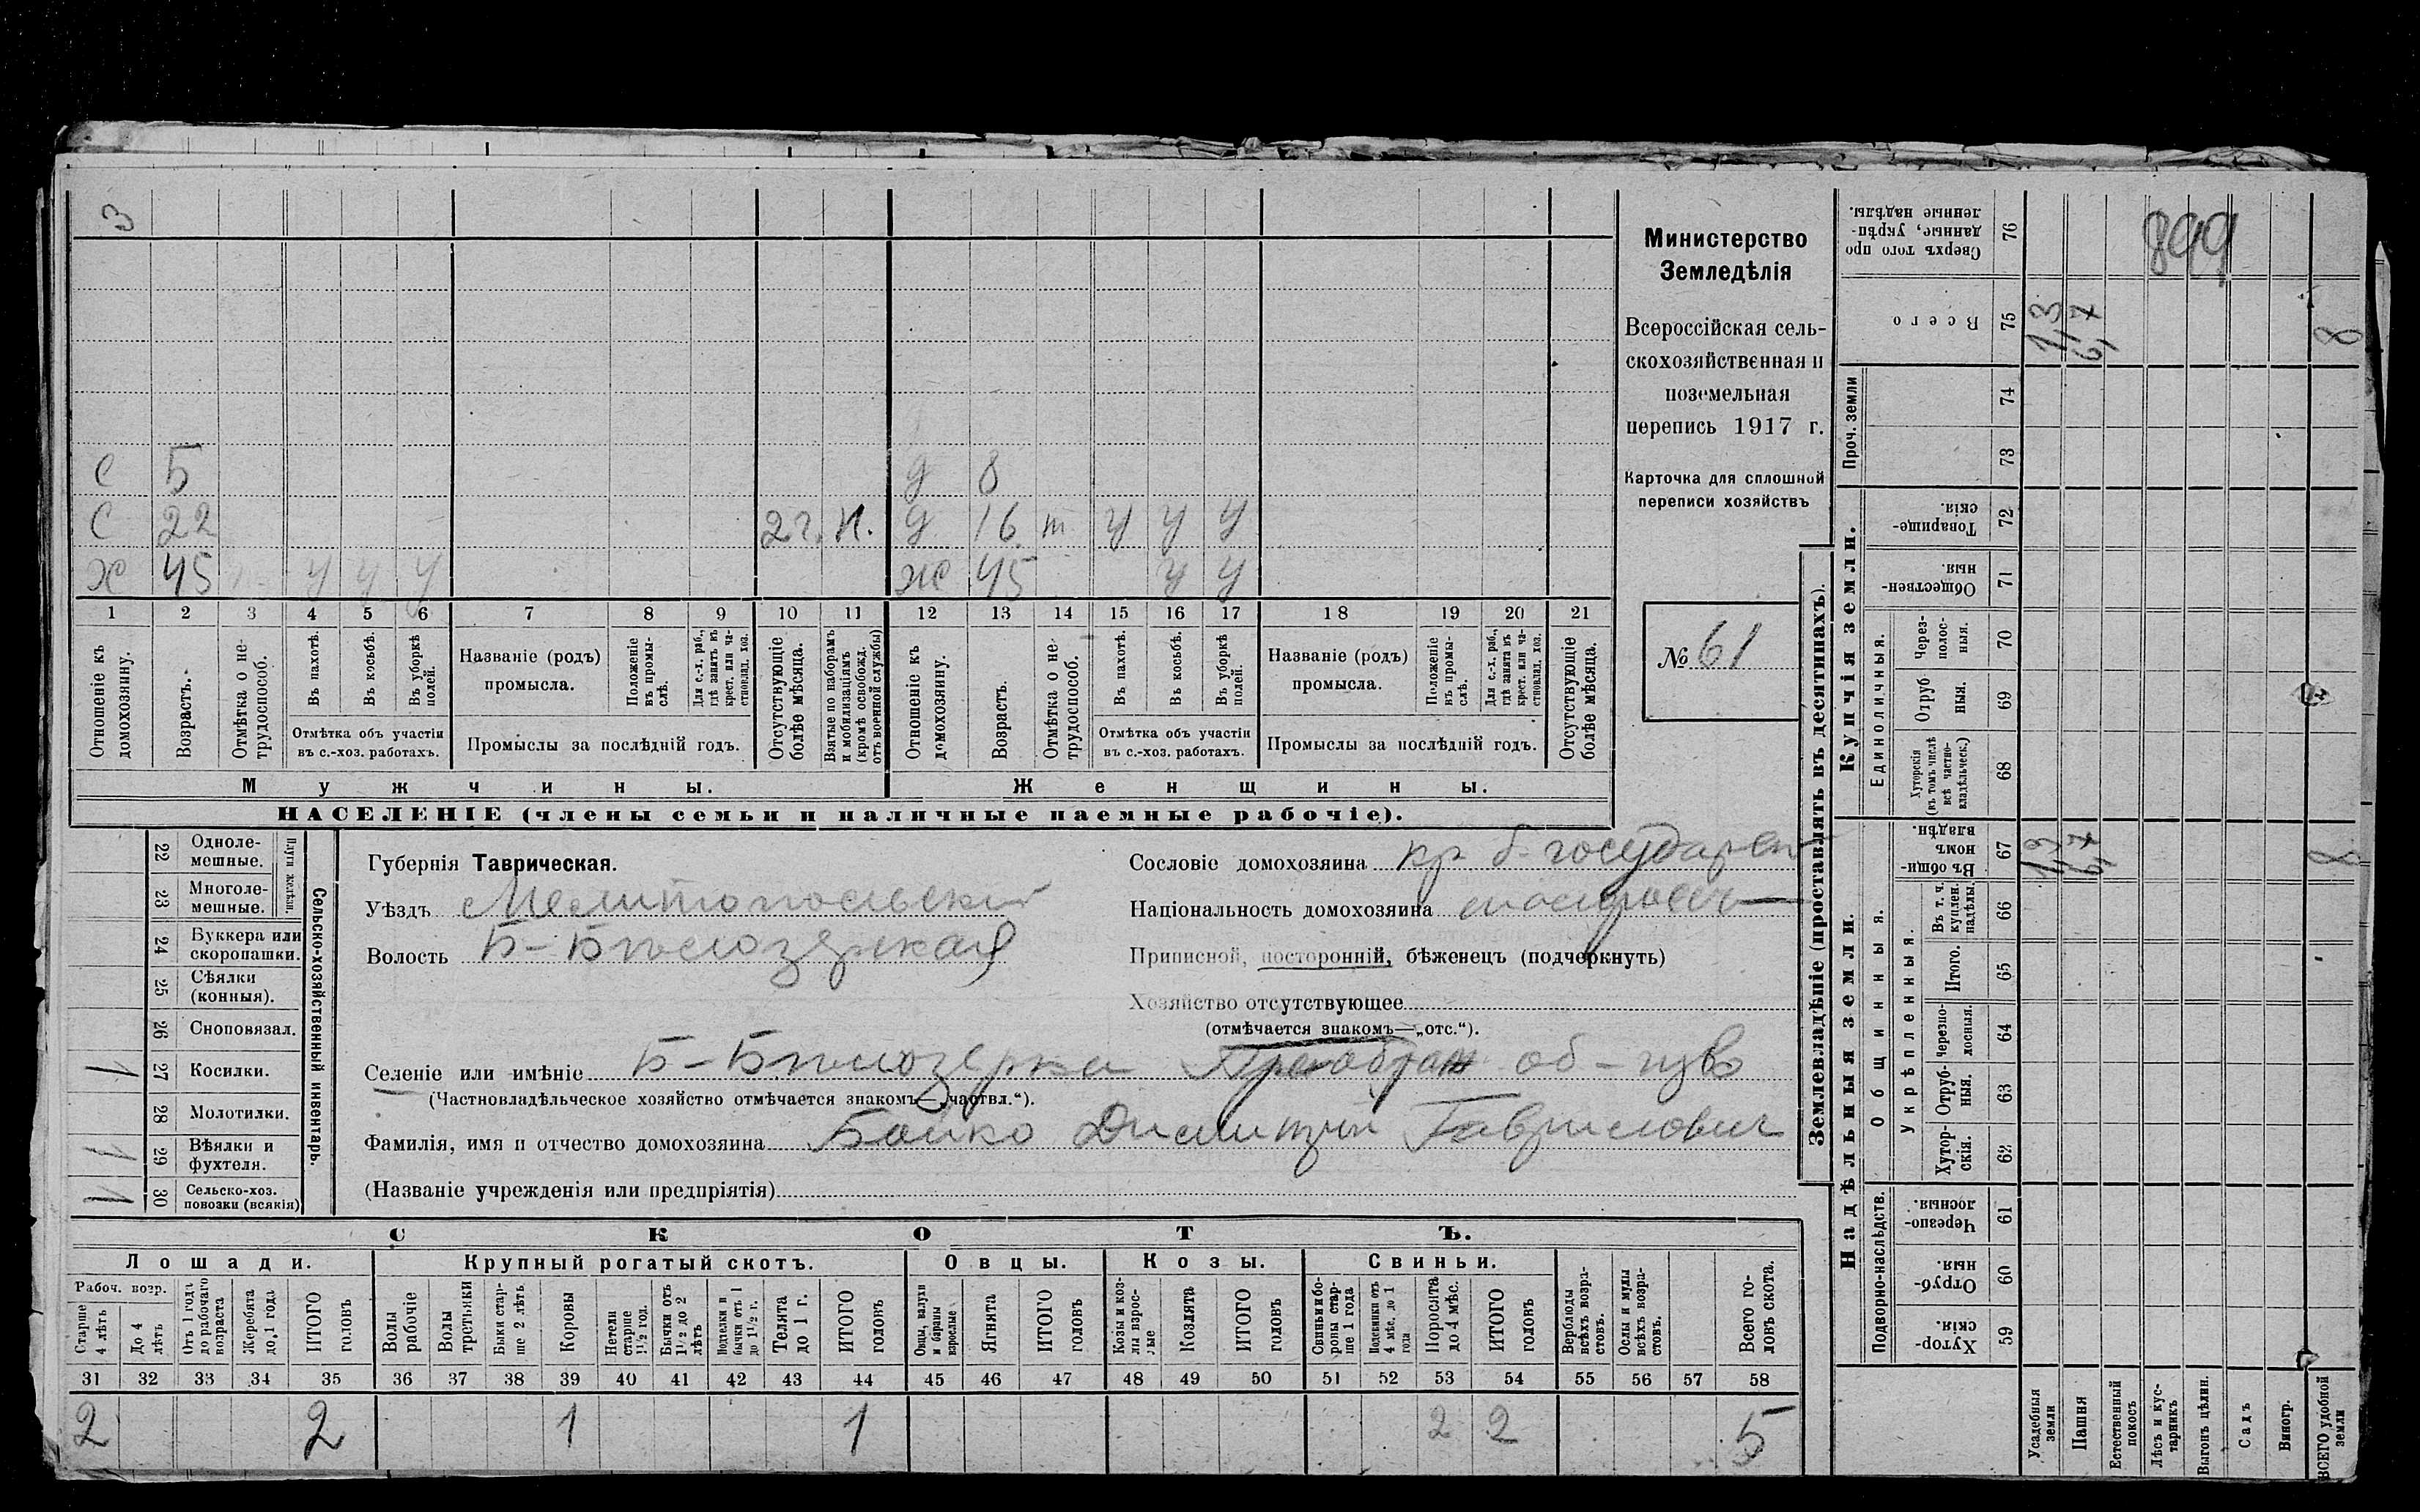 3
С 5 д 8
С 22 2 г. п. д 16 т у у у
Х 45 у у у Ж 45 у у
1 2 3 4 5 6 7 8 9 10 11 12 13 14 15 16 17 18 19 20 21
Отношеніе къ домохозяину.
Возрастъ.
Отмѣтка о нетрудоспособ.
Въ пахотѣ.
Въ косьбѣ.
Въ уборкѣ полей.
Отмѣтка объ участіи
въ с.-хоз. работахъ.
Названіе (родъ)
промысла.
Положеніе въ промыслѣ.
Для с.-х. раб., гдѣ занятъ въ крест. или частновлад. хоз.
Промыслы за послѣдній годъ.
Отсутствующіе болѣе мѣсяца.
Взятые по наборамъ и мобилизаціямъ (кромѣ освобожд. отъ военной службы)
Отношеніе къ домохозяину.
Возрастъ.
Отмѣтка о нетрудоспособ.
Въ пахотѣ.
Въ косьбѣ.
Въ уборкѣ полей.
Отмѣтка объ участіи
въ с.-хоз. работахъ.
Названіе (родъ)
промысла.
Положеніе въ промыслѣ.
Для с.-х. раб., гдѣ занята въ крест. или частновлад. хоз.
Промыслы за послѣдній годъ.
Отсутствующіе болѣе мѣсяца.
Мужчины.
Женщины.
НАСЕЛЕНІЕ (члены семьи и наличные наемные рабочіе).
Министерство
Земледѣлія
Всероссійская сель-
скохозяйственная и
поземельная
перепись 1917 г.
Карточка для сплошной
переписи хозяйствъ
№ 61
Сельско-хозяйственный инвентарь.
Плуги желѣзн.
22 Одноле-
мешные.
23 Многоле-
мешные.
24 Буккера или
скоропашки.
25 Сѣялки
(конныя).
26 Сноповязал.
1 27 Косилки.
28 Молотилки.
1 29 Вѣялки и
фухтеля.
1 30 Сельско-хоз.
повозки (всякія)
Губернія Таврическая.
Уѣздъ Мелитопольский
Волость Б-Бѣлозерская
Сословіе домохозяина кр. б. государст
Національность домохозяина малоросъ
Приписной, посторонній, бѣженецъ (подчеркнуть)
Хозяйство отсутствующее
(отмѣчается знакомъ—„отс.“).
Селеніе или имѣніе Б-Бѣлозерка Преображ об-щво
(Частновладѣльческое хозяйство отмѣчается знакомъ—„частвл.“).
Фамилія, имя и отчество домохозяина Бойко Дмитрій Гаврилович
(Названіе учрежденія или предпріятія)
СКОТЪ.
Лошади. Крупный рогатый скотъ. Овцы. Козы. Свиньи.
Рабоч. возр.
Старше 4 лѣтъ
До 4 лѣтъ
Отъ 1 года до рабочаго возраста
Жеребята до 1 года
ИТОГО головъ
Волы рабочіе
Волы третьяки
Быки старше 2 лѣтъ
Коровы
Нетели старше 1½ год.
Бычки отъ 1½ до 2 лѣтъ
Водделки и бычки отъ 1 до 1½ г.
Телята до 1 г.
ИТОГО головъ
Овцы, валухи и бараны взрослые
Ягнята
ИТОГО головъ
Козы и козлы взрослые
Козлята
ИТОГО головъ
Свиньи и боровы старше 1 года
Подсвинки отъ 4 мѣс. до 1 года
Поросята до 4 мѣс.
ИТОГО головъ
Верблюды всѣхъ возрастовъ.
Ослы и мулы всѣхъ возрастовъ.
Всего головъ скота.
31 32 33 34 35 36 37 38 39 40 41 42 43 44 45 46 47 48 49 50 51 52 53 54 55 56 57 58
2 2 1 1 2 2 5
Землевладѣніе (проставлять въ десятинахъ).
899
Сверхъ того проданные, укрѣпленные надѣлы. 76
Всего 75 1,3 6,7 8
Проч. земли
74
73
Купчія земли.
Товарищескія. 72
Общественныя. 71
Единоличныя.
Черезполосныя. 70
Отрубныя. 69
Хуторскія (въ томъ числѣ всѣ частновладѣльческ.) 68
Надѣльныя земли.
Общинныя.
Въ общинномъ владѣн. 67 1,3 6,7 8
Укрѣпленныя.
Въ т. ч. куплен. надѣлы. 66
Итого. 65
Черезполосныя. 64
Отрубныя. 63
Хуторскія. 62
Подворно-наслѣдств.
Черезполосныя 61
Отрубныя. 60
Хуторскія. 59
Усадебныя земли
Пашня
Естественный покосъ
Лѣсъ и кустарникъ
Выгонъ цѣлин.
Садъ
Виногр.
ВСЕГО удобной земли